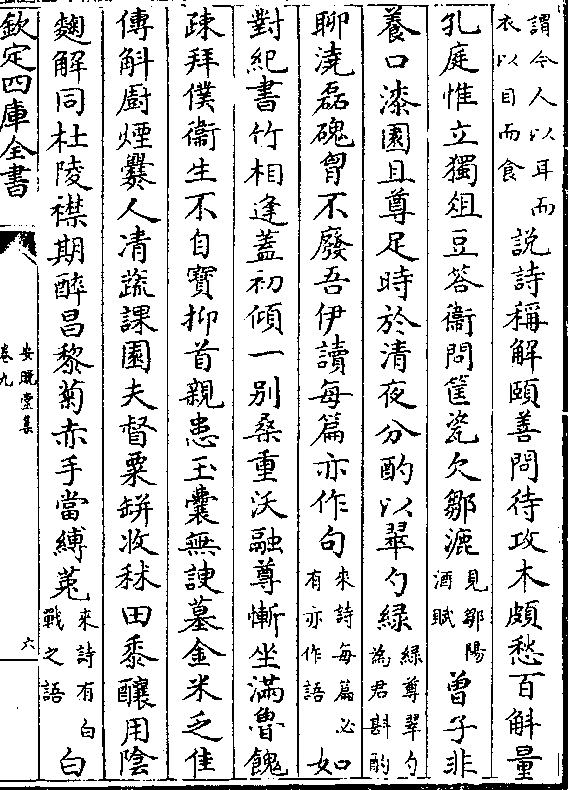 謂令人以耳而
衣以目而食
說詩稱解頤善問待攻木頗愁百斛量
孔庭惟立獨俎豆荅衞問筐瓷欠鄒漉
見鄒陽
酒賦
曾子非
養口漆園且尊足時於清夜分酌以翠勺緑
緑尊翠勺
為君斟酌
聊澆磊磈胷不廢吾伊讀每篇亦作句
來詩每篇必
有亦作語
如
對紀書竹相逢蓋初傾一别桑重沃融尊慚坐滿魯餽
疎拜僕衞生不自寳抑首親患玉囊無諛墓金米乏佳
傳斛廚煙爨人凊蔬課園夫督粟缾收秫田黍釀用陰
麴解同杜陵襟期醉昌黎菊赤手當縛菟
來詩有白
戰之語
白
欽定四庫全書
安晚堂集
卷九
六